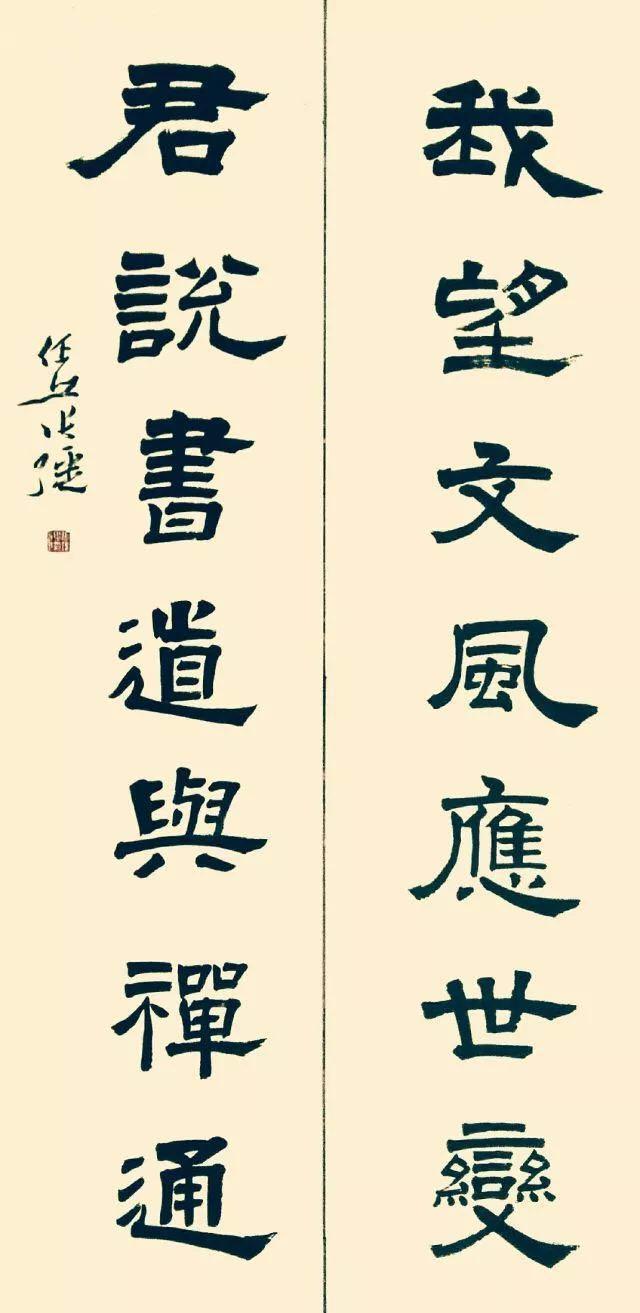 我望文風應世變
君說書道與禪通
任丘